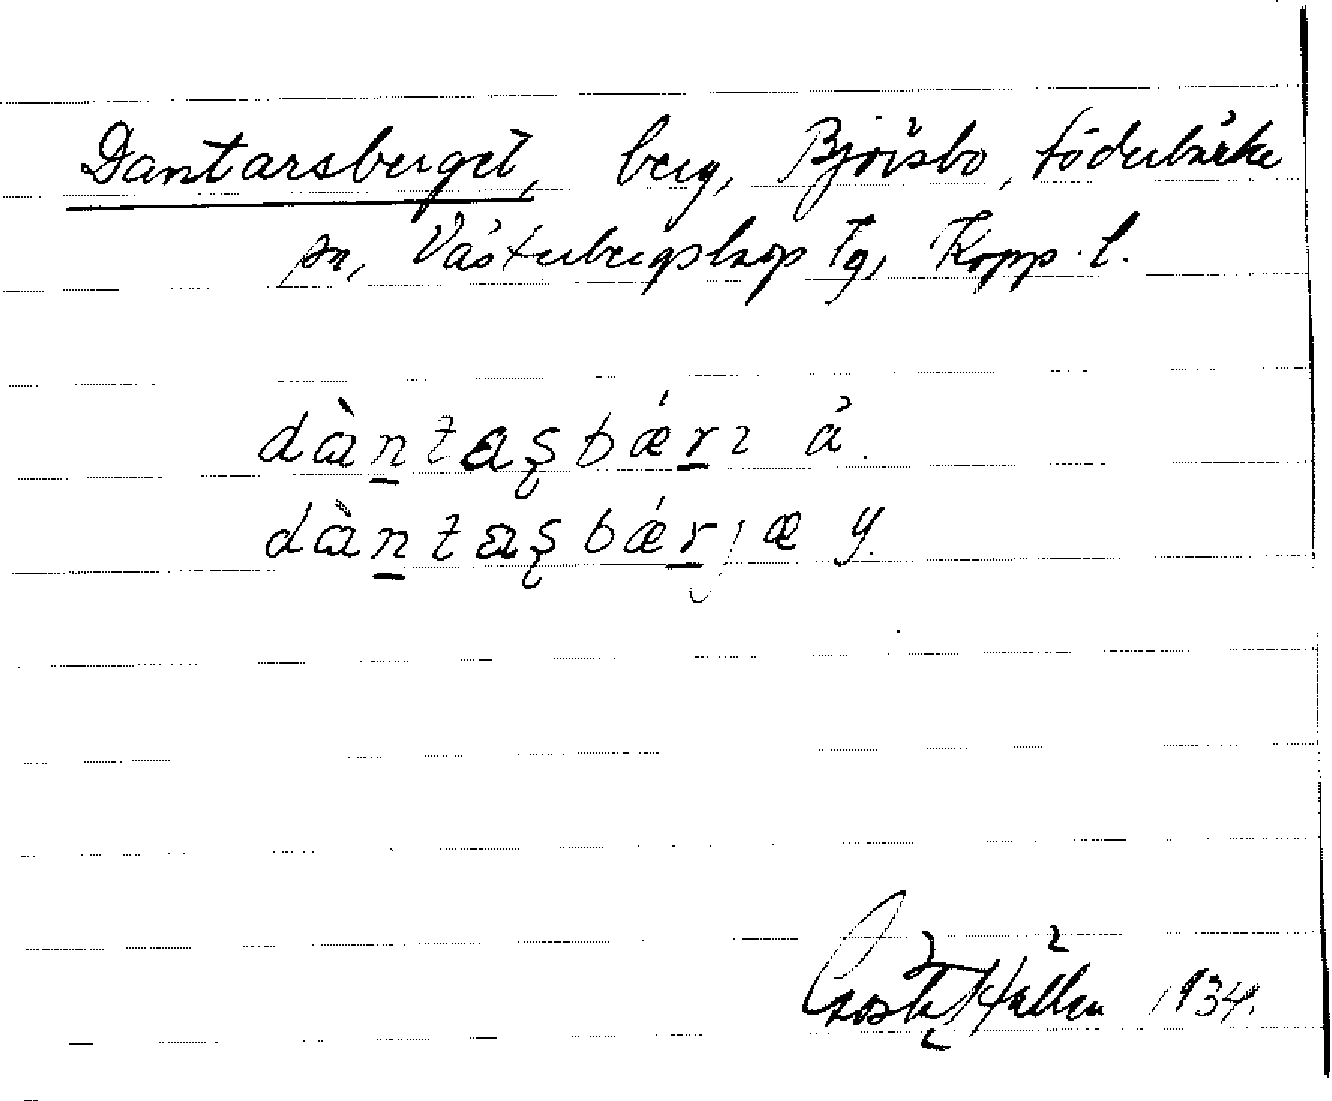 Dantarsberget, berg, Björsbo, Söderbärke
sn, Västerbergslags Tg, Kopp. l.
dàntasbǽrı ä.
dàntasbǽrjæ y.
Gösta Hallén 1934.